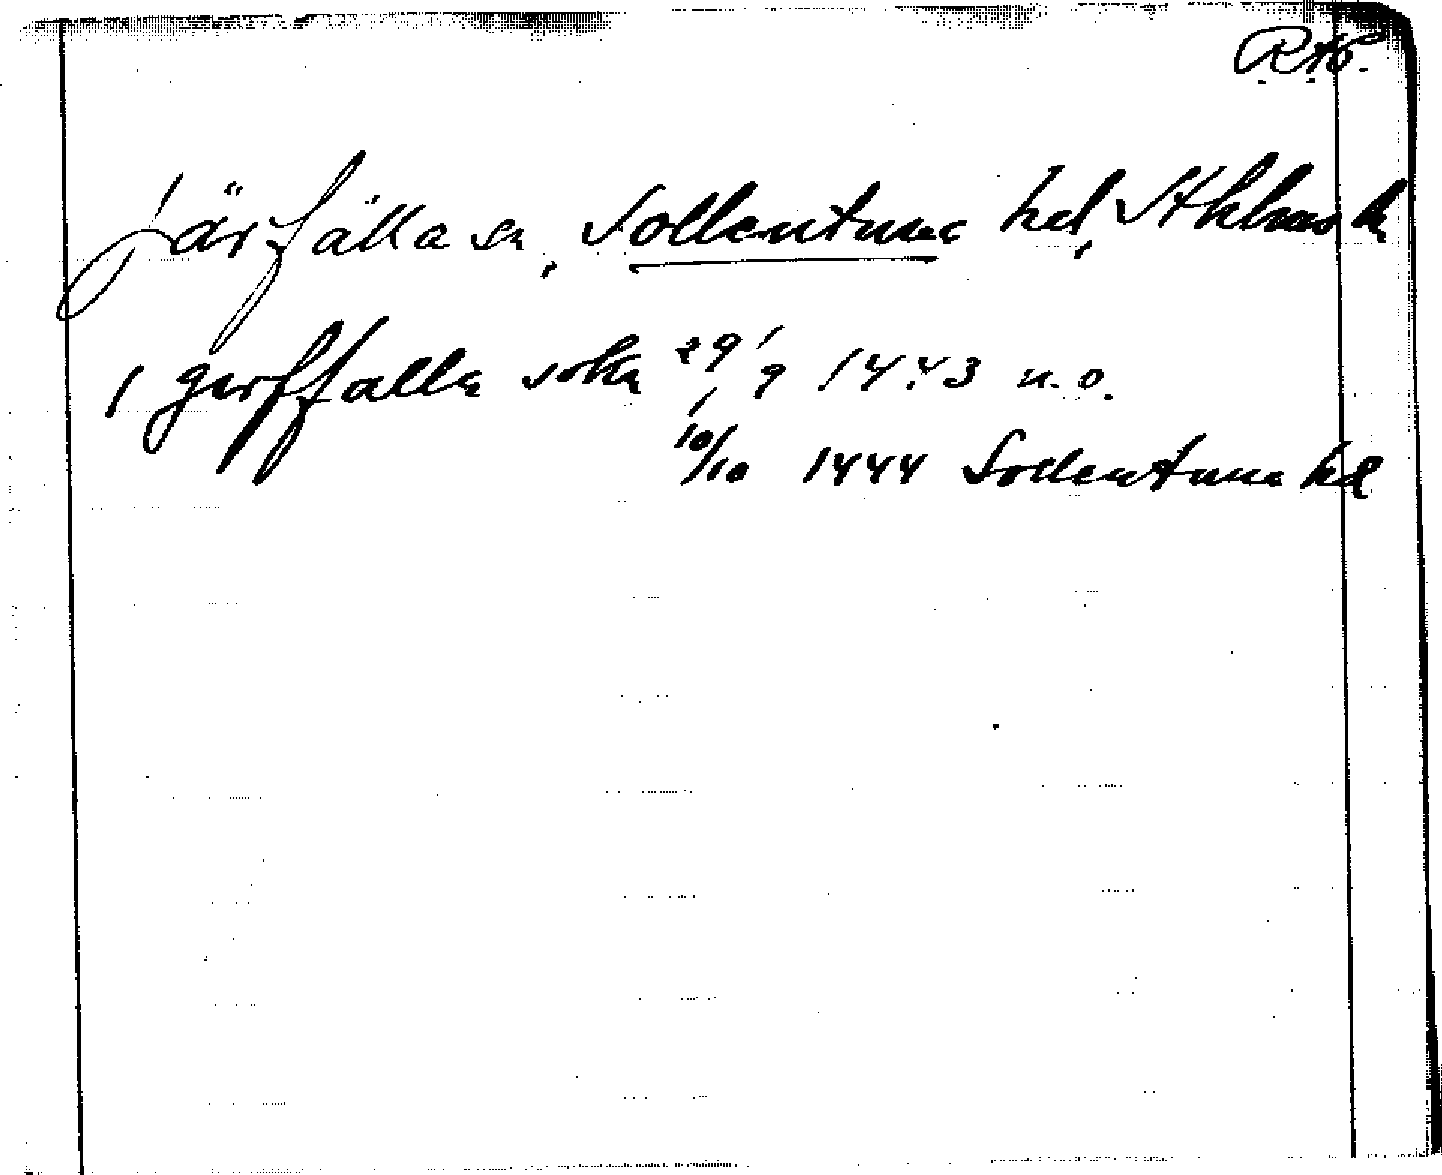 RAP.
Järfälla sn, Sollentuna hd, Sthlms l.
I gerffalla sokn 29/9 1443 u.o.
10/10 1444 Sollentuna hd